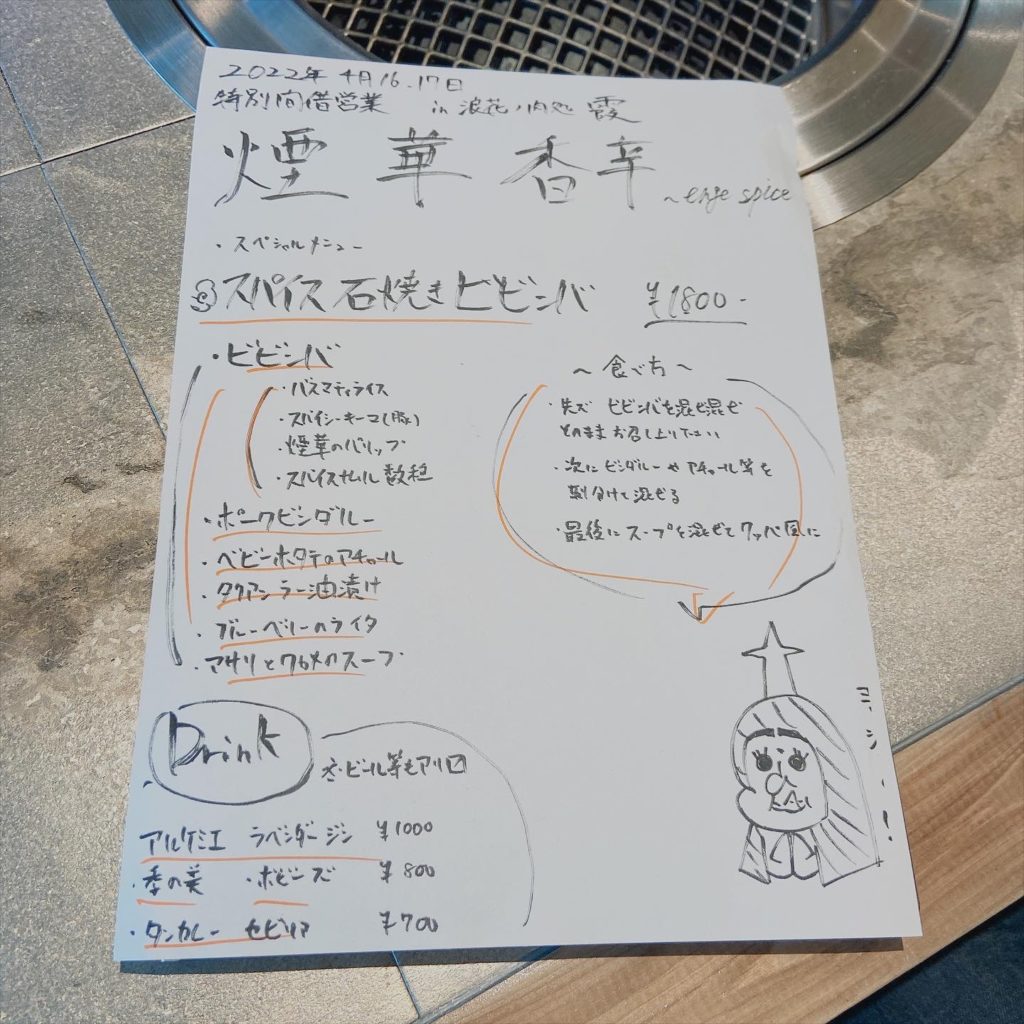 2022年 4月16.17日
特別間借営業 in 浪花ノ肉処 霞
煙華香辛 ~enge spice
・スペシャルメニュー
スパイス石焼きビビンバ ¥1800-
・ビビンバ
・バスマティライス
・スパイシーキーマ(豚)
・煙華のパリップ
・スパイスナムル数種
・ポークビンダルー
・ベビーホタテのアチャール
・タクアンラー油漬け
・ブルーベリーのライタ
・アサリとワカメのスープ
~食べ方~
・先ズ ビビンバを混ぜ混ぜ
そのままお召し上り下さい
・次にビンダルーやアチャール等を
剤分けて混ぜる
・最後にスープを混ぜてクッパ風に
ミ、ン、ー!
Drink
ビール等もアリ〼
・アルケミエ ラベンダージン ¥1000
・季の美 ・ボビーズ ¥800
・タンカレー セビリア ¥700